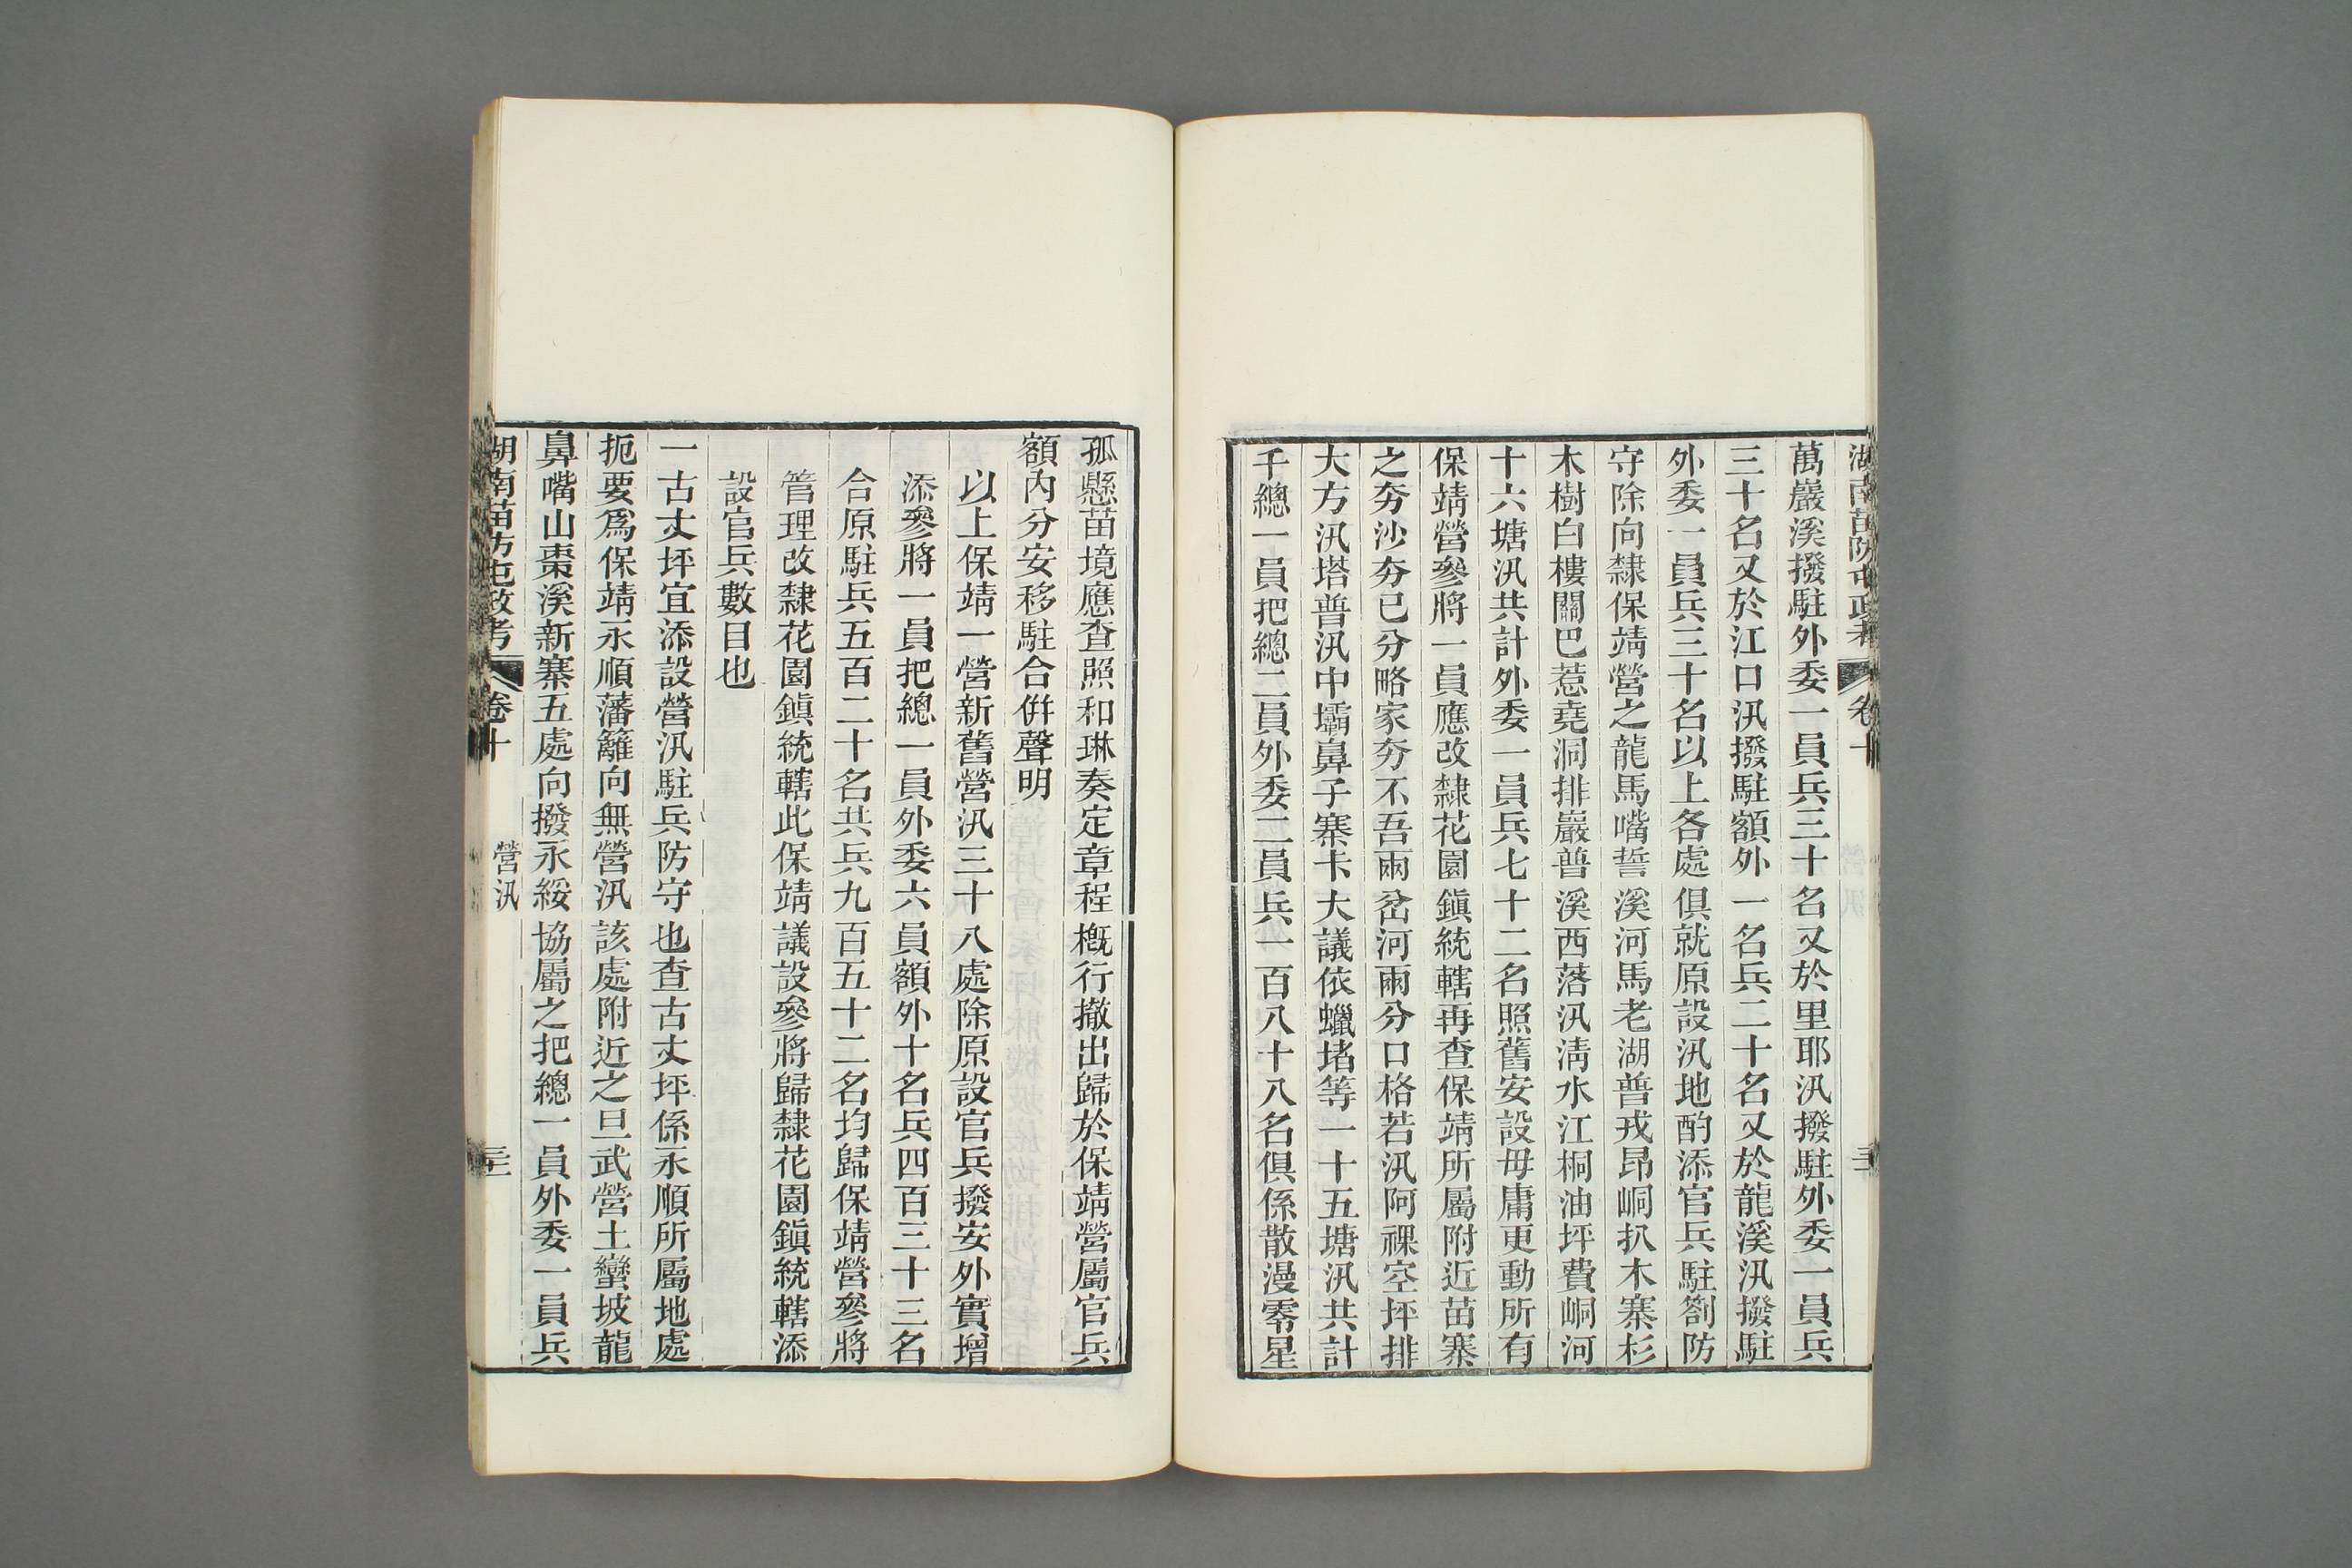 湖南苗防屯政考 卷十
萬巖溪撥駐外委一員兵三十名又於里耶汛撥駐外委一員兵
三十名又於江口汛撥駐額外一名兵二十名又於龍溪汛撥駐
外委一員兵三十名以上各處俱就原設汛地酌添官兵駐劄防
守除向隸保靖營之龍馬嘴誓溪河馬老湖普戎昂峒扒木寨杉
木樹白樓關巴惹堯洞排巖普溪西落汛淸水江桐油坪費峒河
十六塘汛共計外委一員兵七十二名照舊安設毋庸更動所有
保靖營參將一員應改隸花園鎭統轄再查保靖所屬附近苗寨
之夯沙夯巳分略家夯不吾兩岔河兩分口格若汛阿祼空坪排
大方汛塔普汛中壩鼻子寨卡大議依蠟堵等一十五塘汛共計
千總一員把總二員外委二員兵一百八十八名俱係散漫零星
孤懸苗境應查照和琳奏定章程槪行撤出歸於保靖營屬官兵
額內分安移駐合併聲明
以上保靖一營新舊營汛三十八處除原設官兵撥安外實增
添參將一員把總一員外委六員額外十名兵四百三十三名
合原駐兵五百二十名共兵九百五十二名均歸保靖營參將
管理改隸花園鎭統轄此保靖議設參將歸隸花園鎭統轄添
設官兵數目也
一古丈坪宜添設營汛駐兵防守也查古丈坪係永順所屬地處
扼要爲保靖永順藩籬向無營汛該處附近之旦武營土蠻坡龍
鼻嘴山棗溪新寨五處向撥永綏協屬之把總一員外委一員兵
湖南苗防屯政考 卷十 營汛